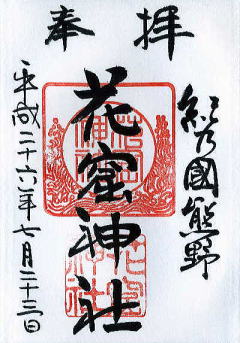 奉拝
紀乃國熊野
花窟神社
平成二十六年七月二十三日